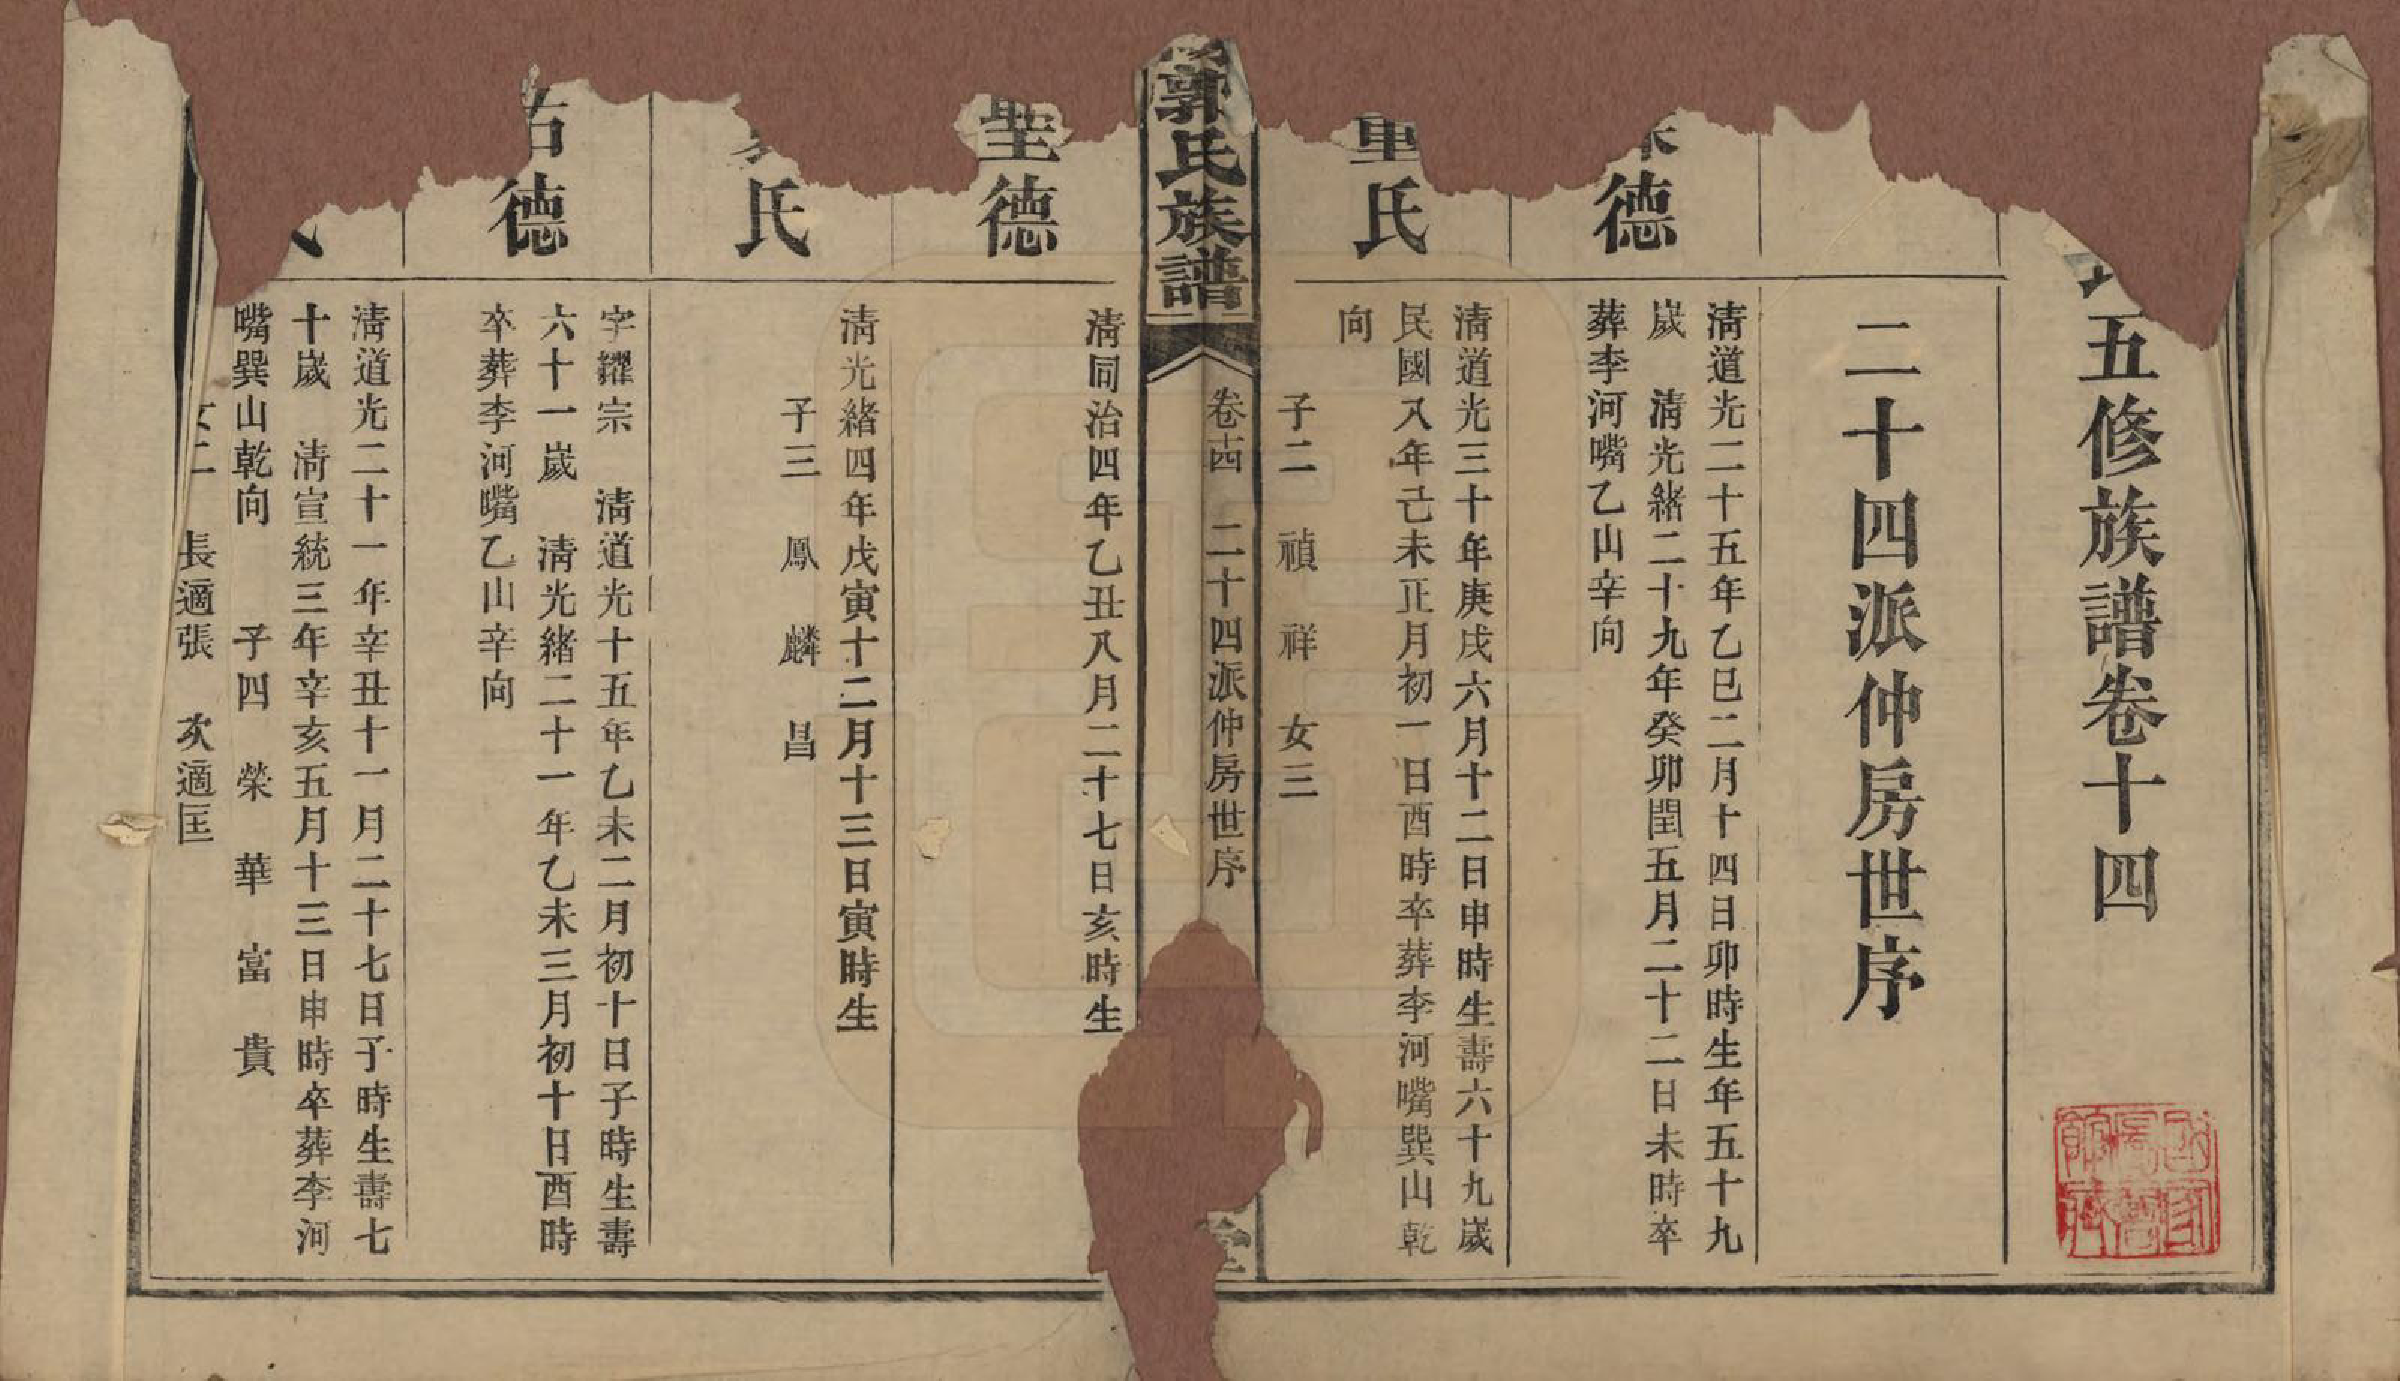 五修族譜卷十四
二十四派仲房世序
德
清道光二十五年乙巳二月十四日卯時生年五十九
歲　清光緒二十九年癸卯閏五月二十二日未時卒
葬李河嘴乙山辛向
氏
清道光三十年庚戌六月十二日申時生壽六十九歲
民國八年己未正月初一日酉時卒葬李河嘴巽山乾
向
子二　禎　祥　女三
郭氏族譜　卷十四　二十四派仲房世序　堂
聖德
清同治四年乙丑八月二十七日亥時生
氏
清光緒四年戊寅十二月十三日寅時生
子三　鳳　麟　昌
德
字耀宗　清道光十五年乙未二月初十日子時生壽
六十一歲　清光緒二十一年乙未三月初十日酉時
卒葬李河嘴乙山辛向
清道光二十一年辛丑十一月二十七日子時生壽七
十歲　清宣統三年辛亥五月十三日申時卒葬李河
嘴巽山乾向　子四　榮　華　富　貴
女二　長適張　次適匡